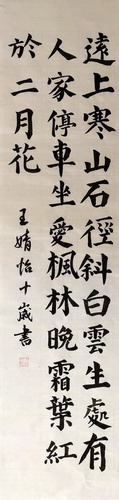 遠上寒山石徑斜白雲生處有
人家停車坐愛楓林晚霜葉紅
於二月花
王婧怡十歲書